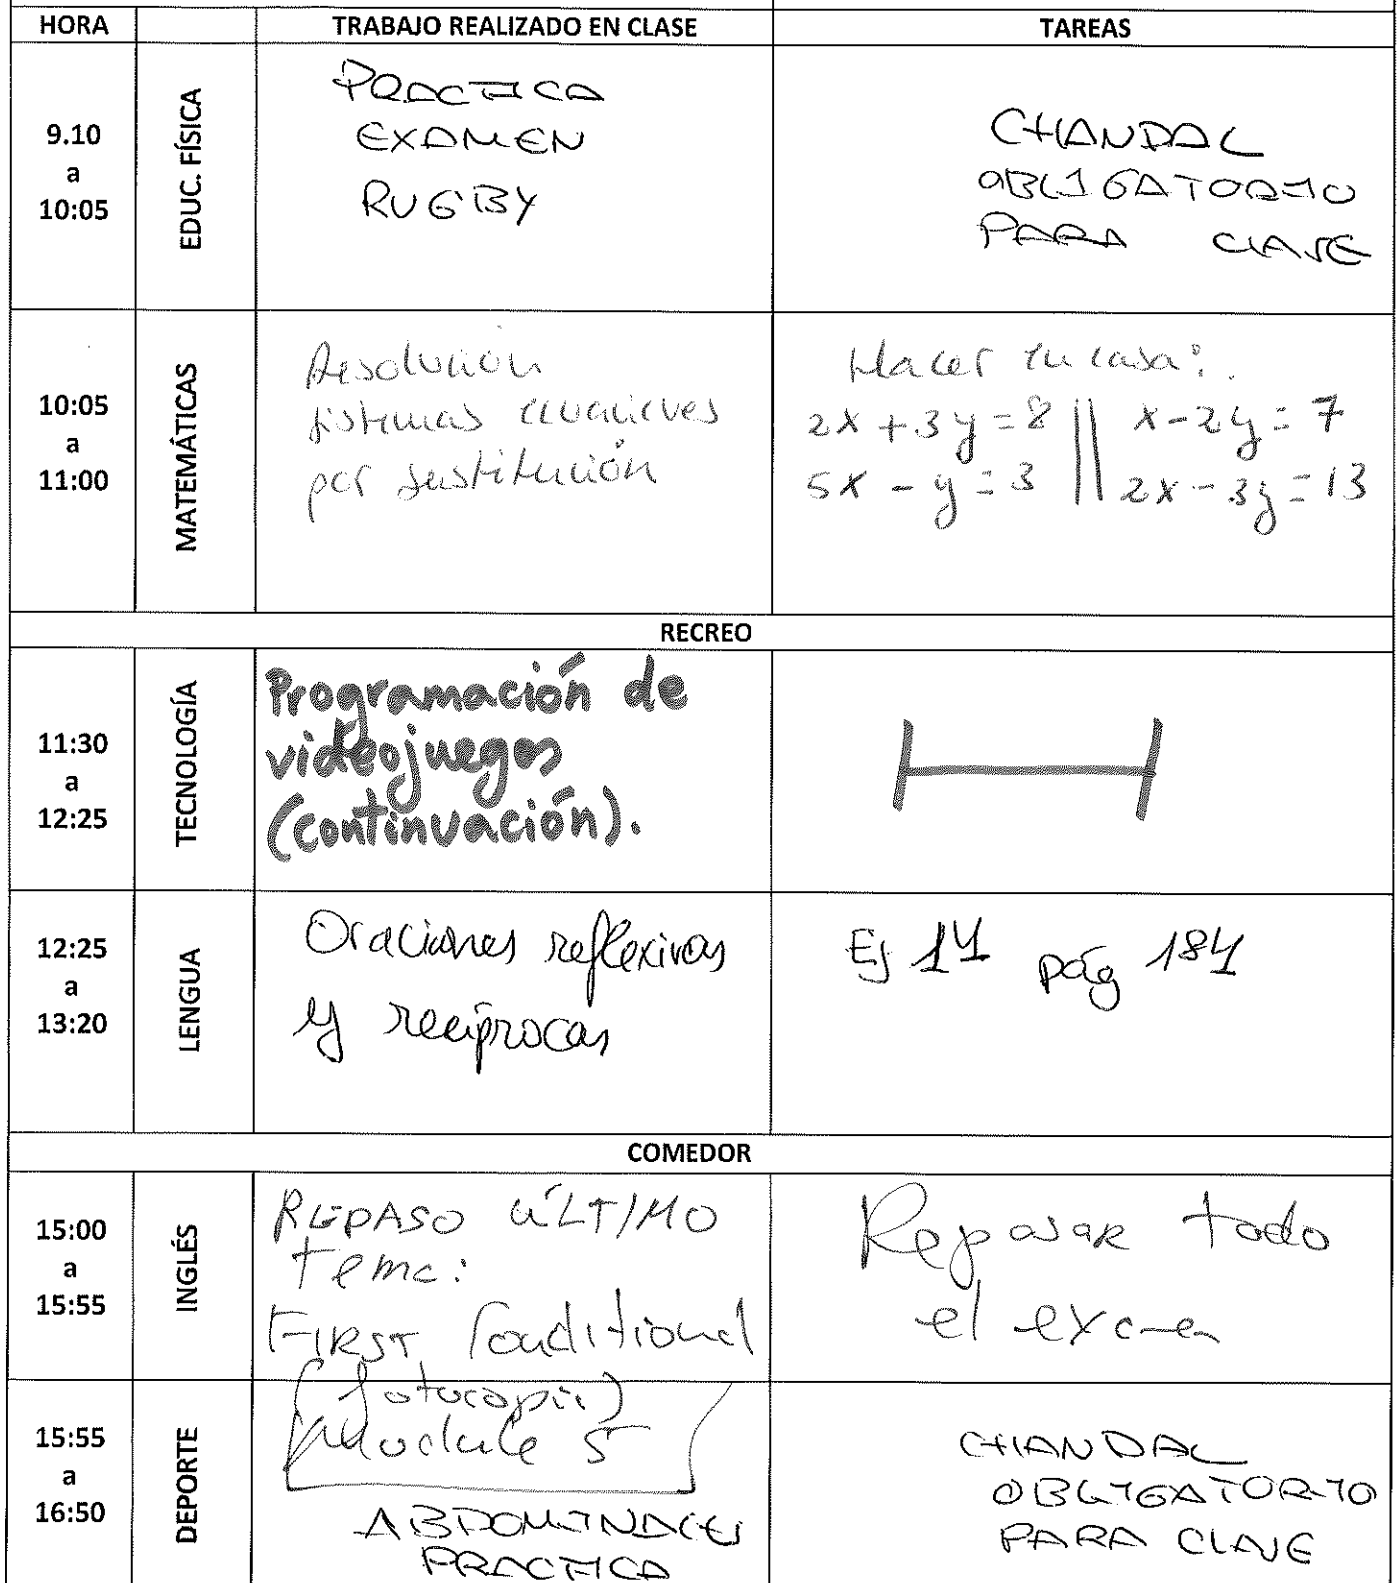 HORA TRABAJO REALIZADO EN CLASE TAREAS
9.10
a
10:05
EDUC. FÍSICA
PRACTICA
EXAMEN
RUGBY
CHANDAL
OBLIGATORIO
PARA CLASE
10:05
a
11:00
MATEMÁTICAS
Resolución
sistemas ecuaciones
por sustitución
Hacer en casa:
2x + 3y = 8 || x - 2y = 7
5x - y = 3 || 2x - 3y = 13
RECREO
11:30
a
12:25
TECNOLOGÍA
Programación de
videojuegos
(continuación).
12:25
a
13:20
LENGUA
Oraciones reflexivas
y recíprocas
Ej 14 pág 184
COMEDOR
15:00
a
15:55
INGLÉS
REPASO ÚLTIMO
tema:
FIRST Conditional
(fotocopia)
Module 5
Repasar todo
el examen
15:55
a
16:50
DEPORTE
ABDOMINALES
PRACTICA
CHANDAL
OBLIGATORIO
PARA CLASE